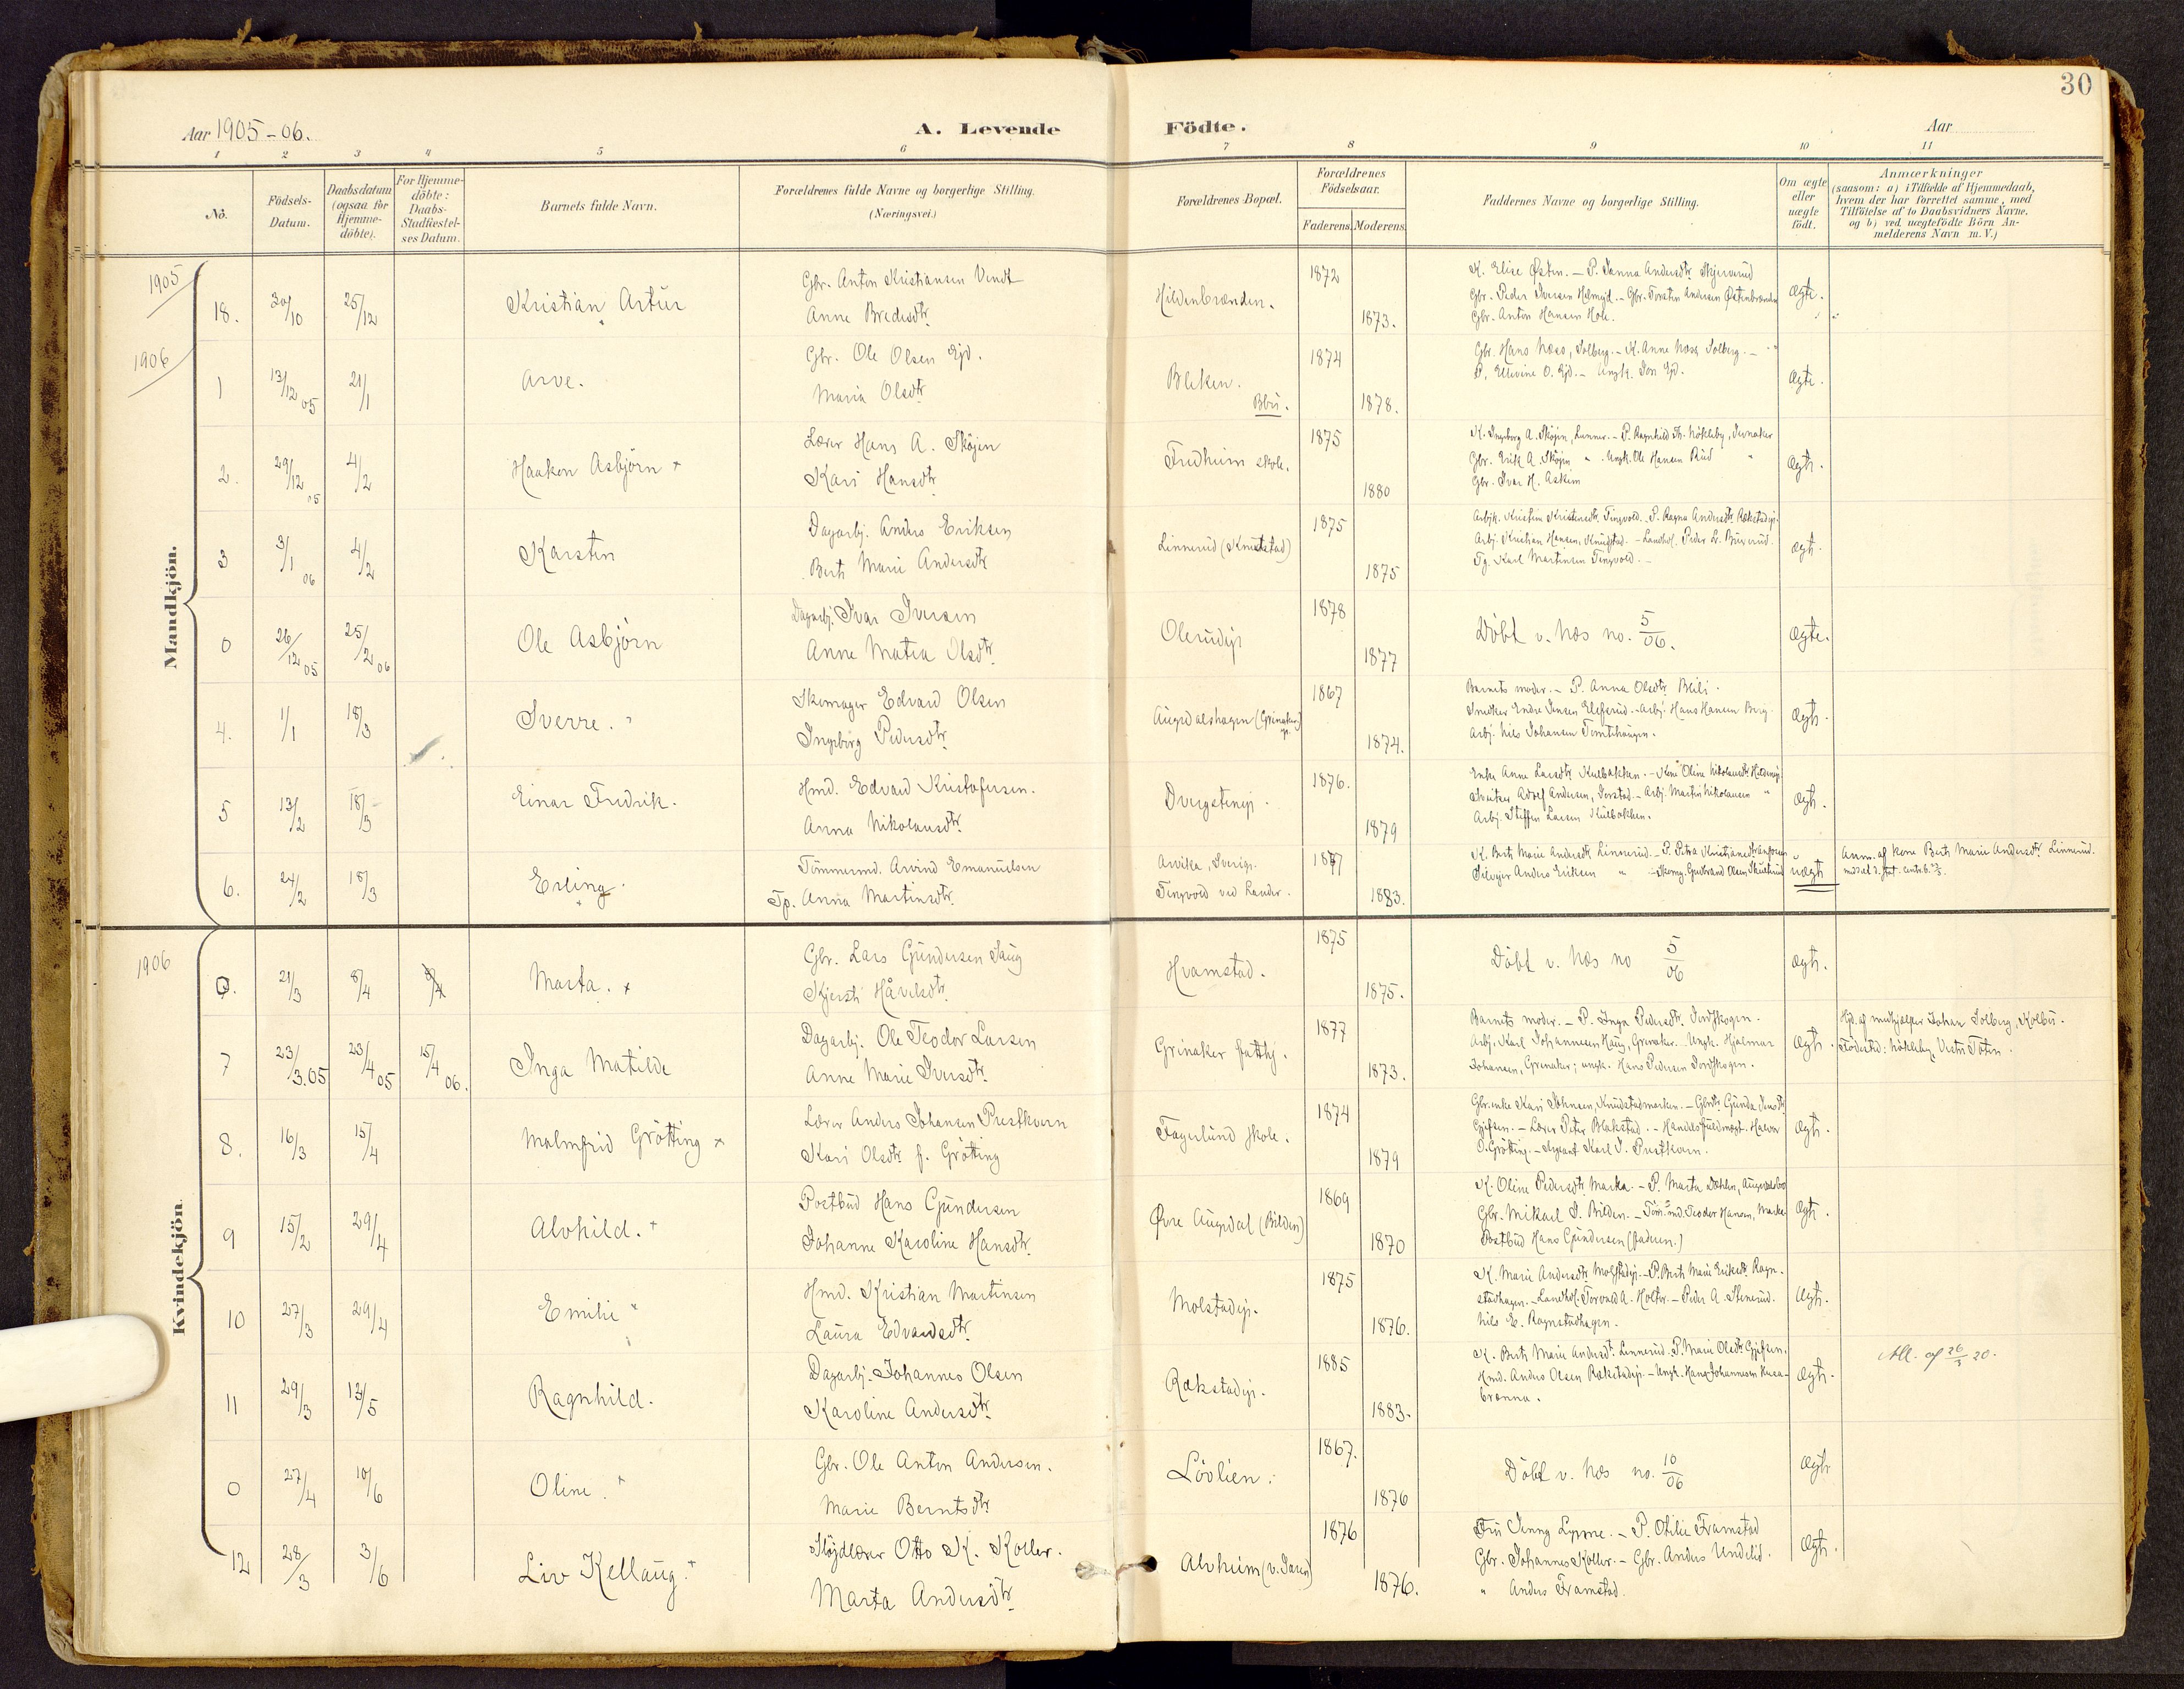 30
Aar 1905-06.
A. Levende Födte.
Aar
1 2 3 4 5 6 7 8 9 10 11
Nö.
Födsels-Datum.
Daabsdatum (ogsaa for Hjemme-döbte).
For Hjemme-döbte: Daabs-Stadfæstel-ses Datum.
Barnets fulde Navn.
Forældrenes fulde Navne og borgerlige Stilling.
(Næringsvei.)
Forældrenes Bopæl.
Forældrenes Födselsaar.
Faderens. Moderens.
Faddernes Navne og borgerlige Stilling.
Om ægte eller uægte födt.
Anmærkninger
(saasom: a) i Tilfælde af Hjemmedaab,
hvem der har forrettet samme, med
Tilföielse af to Daabsvidners Navne,
og b) ved uægtefödte Börn An-
melderens Navn m. V.)
Mandkjön.
1905
18. 30/10 25/12 Kristian Artur
Gbr. Anton Kristiansen Vendt
Anne Bredesdtr.
Hildenbrænden. 1872 1873.
K. Elise Østen. - P. Janna Andersdtr. Skjerverud
Gbr. Peder Iversen Helmejd. - Gbr. Torsten Andersen Østenbrænden
Gbr. Anton Hansen Hole.
Ægte.
1906
1 13/12 05 21/1 Arve.
Gbr. Ole Olsen Ejd.
Maria Olsdtr.
Bleken. Bbu. 1874 1878.
Gbr. Hans Næss, Solberg. - K. Anne Næss Solberg. -
P. Ellevine O. Ejd. - Ungk. Jon Ejd.
Ægte.
2. 29/12 05 4/2 Haakon Asbjörn +
Lærer Hans A. Sköjen
Kari Hansdtr.
Fredheim skole. 1875 1880
K. Ingeborg A. Sköjen, Lunner. - P. Ragnhild Th. Nökleby, Jevnaker
Gbr. Erik A. Sköjen " . Ungk. Ole Hansen Rud "
Gbr. Ivar H. Askim
Ægte.
3 3/1 06 4/2 Karsten
Dagarbj. Anders Eriksen
Berte Marie Andersdtr.
Linnerud (Knutstad) 1875 1875
Arbjk. Kristine Kristensdtr. Tingvold. - P. Ragna Andersdtr. Rækstadejr.
Arbj. Kristian Hansen, Knudstad. - Landhdl. Peder L. Buverud.
Tg. Karl Martinsen Tingvold. -
Ægte.
0 26/12 05 25/2 06 Ole Asbjörn
Dagarbj. Ivar Iversen
Anne Matea Olsdtr.
Olerudejr 1878 1877
Döbt v. Næs no. 5/06.
Ægte.
4. 1/1 18/3 Sverre.
Skomager Edvard Olsen
Ingeborg Pedersdtr.
Augedalshagen (Grinaker) 1867 1874.
Barnets moder. - P. Anna Olsdtr. Blili.
Snedker Endre Jensen Elefsrud. - Arbj. Hans Hansen Berg.
Arbj. Nils Johansen Tomtehaugen.
Ægte.
5 13/2 18/3 Einar Fredrik.
Hmd. Edvard Kristofersen.
Anna Nikolausdtr.
Dvergstenejr. 1876. 1879
Enke Anne Larsdtr. Kulbakken. - Kone Oline Nikolausdtr. Hildenejr.
Sveitser Adolf Andersen, Jerstad. - Arbj. Martin Nikolausen "
Arbj. Steffen Larsen Kulbakken.
Ægte.
6. 24/2 18/3 Erling.
Tömmermd. Arvind Emanuelsen
Tp. Anna Martinsdtr.
Arvika, Sverige.
Tingvold ved Lunder. 1877 1883.
K. Berte Marie Andersdtr. Linnerud. - P. Petra Kristiansdtr.
Anders Eriksen " - Skomg. Gudbrand Olsen
uægte
Anm. af kone Berte Marie Andersdtr. Linnerud.
Kvindekjön
1906
0. 21/3 8/4 8/4 Marta. +
Gbr. Lars Gundersen Haug
Kjersti Håvelsdtr.
Hvamstad. 1875 1875.
Döbt v. Næs no 5/06
Ægte.
7 23/3.05 23/4 05 15/4 06. Inga Matilde
Dagarbj. Ole Teodor Larsen
Anne Marie Iversdtr.
Grinaker fatthj. 1877 1873.
Barnets moder. - P. Inga Pedersdtr. Jordskogen.
Arbj. Karl Johannesen Haug, Grinaker. - Ungk. Hjalmar
Johansen, Grinaker; ungk. Hans Pedersen Jordskogen.
Ægte.
Hjd. af medhjælper Johan Solberg, Kolbu.
Födested: Nökleby, Vestre Toten.
8. 16/3 15/4 Malmfrid Grötting +
Lærer Anders Johansen Prestkvern
Kari Olsdtr. f. Gröting
Fagerlund skole. 1874 1879
Gbr.enke Kari Johnsen, Knudstadmarken. - Gbrdtr. Gunda Jensdtr.
Gjefsen. - Lærer Peter Blakstad. - Handelsfuldmægt. Halvor
O. Grötting. - Agrant Karl J. Prestkvern.
Ægte.
9 15/2 29/4 Alvhild. +
Postbud Hans Gundersen
Johanne Karoline Hansdtr.
Övre Augedal (Bilden) 1869 1870
K. Oline Pedersdtr. Marka. - P. Marta Dæhlen, Augedalsbro
Gbr. Mikael I. Bilden. - Töm.md. Teodor Hansen, Marka
Postbud Hans Gundersen (faderen.)
Ægte.
10 27/3 29/4 Emilie
Hmd. Kristian Martinsen
Laura Edvardsdtr.
Molstadejr. 1875 1876.
K. Marie Andersdtr. Molstadejr. - P. Berte Marie Eriksdtr. Ragn-
stadhagen. - Landhdl. Torvald A. Holter. - Peder A. Stenerud.
Nils E. Ragnstadhagen.
Ægte.
11 29/3 13/5 Ragnhild.
Dagarbj. Johannes Olsen
Karoline Andersdtr.
Rækstadejr. 1885 1883.
K. Berte Marie Andersdtr. Linnerud. P. Marie Olsdtr. Gjefsen.
Hmd. Anders Olsen Rækstadejr. - Ungk. Hans Johannesen Husa-
brænna.
Ægte.
Att. af 26/3 20.
0 27/4 10/6 Oline.
Gbr. Ole Anton Andersen.
Marie Berntsdtr.
Lövlien. 1867. 1876
Döbt v. Næs no. 10/06
Ægte
12 28/3 3/6 Liv Kellaug.
Slöjdlærer Otto K. Koller.
Marta Andersdtr.
Alvheim (v. Jaren) 1876 1876.
Fru Jenny Lynne. - P. Otilie Framstad
Gbr. Johannes Koller. - Gbr. Anders Undelid.
" Anders Framstad.
Ægte.